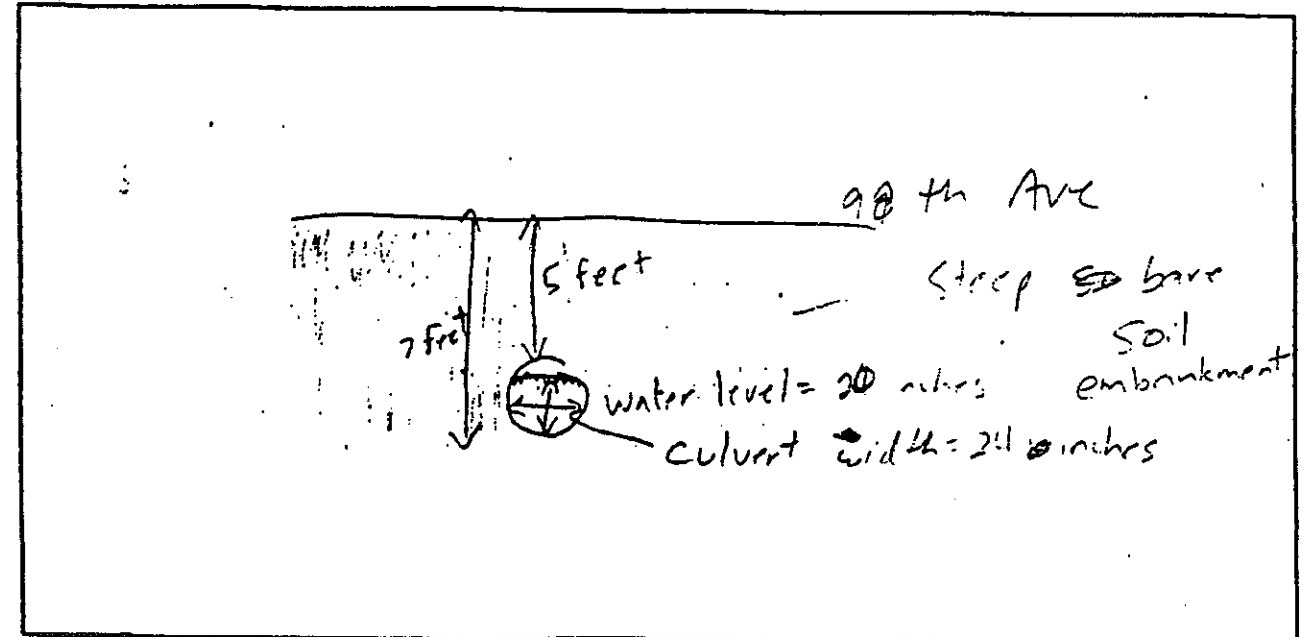 98th Ave
5 feet
Steep bare
soil
7 feet
embankment
water level = 20 inches
culvert width = 24 inches